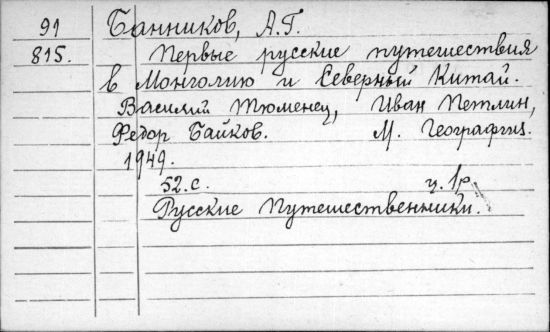 91 Банников, А.Г.
815. Первые русские путешествия
в Монголию и Северный Китай.
Василий Тюменец, Иван Петлин,
Федор Байков. М. Географгиз.
1949.
52.с. ц. 1р.
Русские Путешественники.